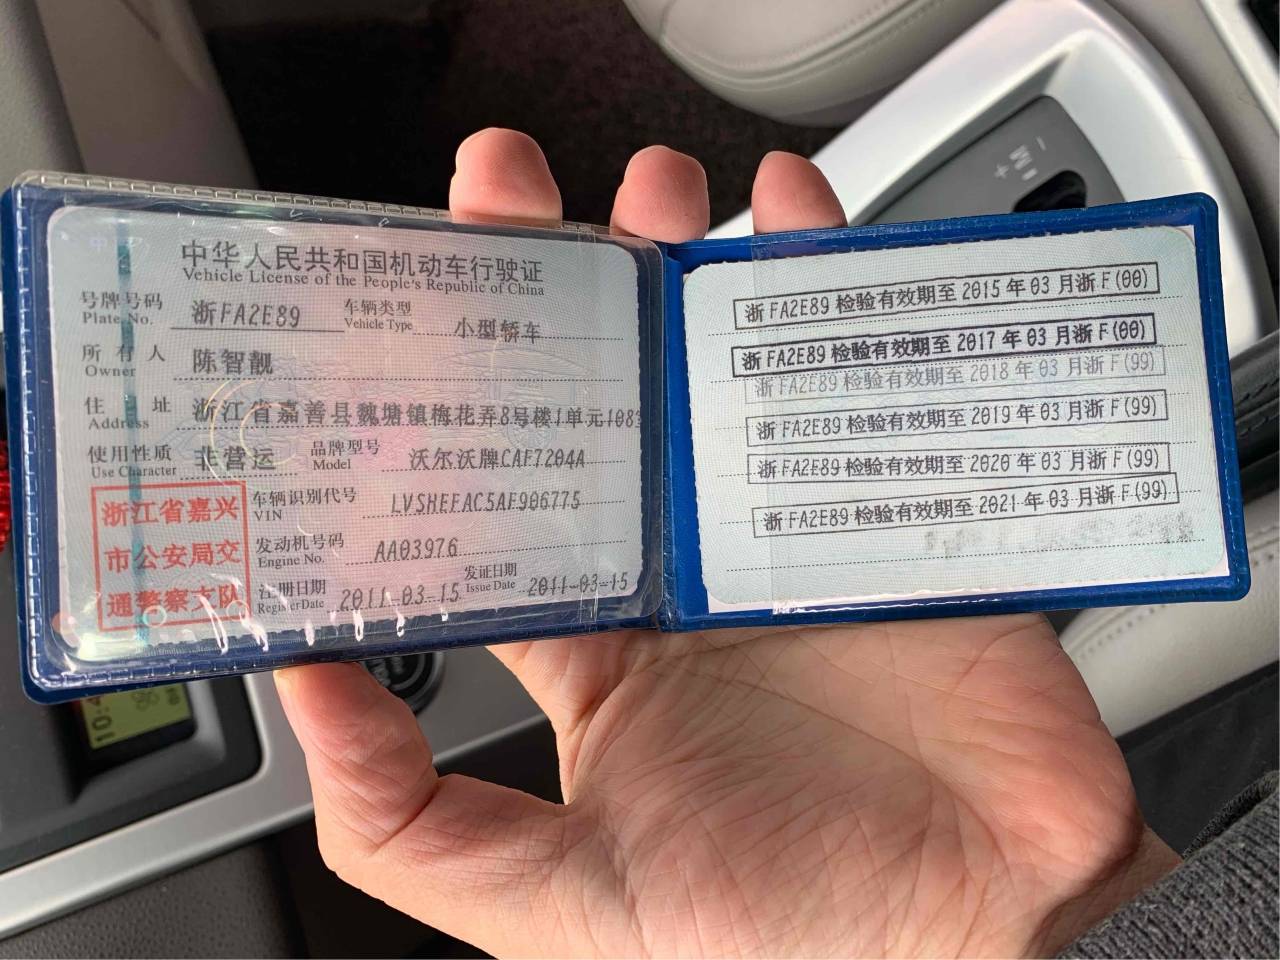 中华人民共和国机动车行驶证
Vehicle License of the People's Republic of China
号牌号码 浙FA2E89 车辆类型 小型轿车
Plate No. Vehicle Type
所有人 陈智靓
Owner
住址 浙江省嘉善县魏塘镇梅花弄8号楼1单元108
Address
使用性质 非营运 品牌型号 沃尔沃牌CAF7204A
Use Character Model
浙江省嘉兴
市公安局交
通警察支队
车辆识别代号 LVSHEFAC5AF906775
VIN
发动机号码 AA03976
Engine No.
注册日期 2011-03-15 发证日期 2011-03-15
Register Date Issue Date
浙FA2E89 检验有效期至 2015 年 03 月浙 F(00)
浙FA2E89 检验有效期至 2017 年 03 月浙 F(00)
浙FA2E89 检验有效期至 2018 年 03 月浙 F(99)
浙FA2E89 检验有效期至 2019 年 03 月浙 F(99)
浙FA2E89 检验有效期至 2020 年 03 月浙 F(99)
浙FA2E89 检验有效期至 2021 年 03 月浙 F(99)
M
+
−